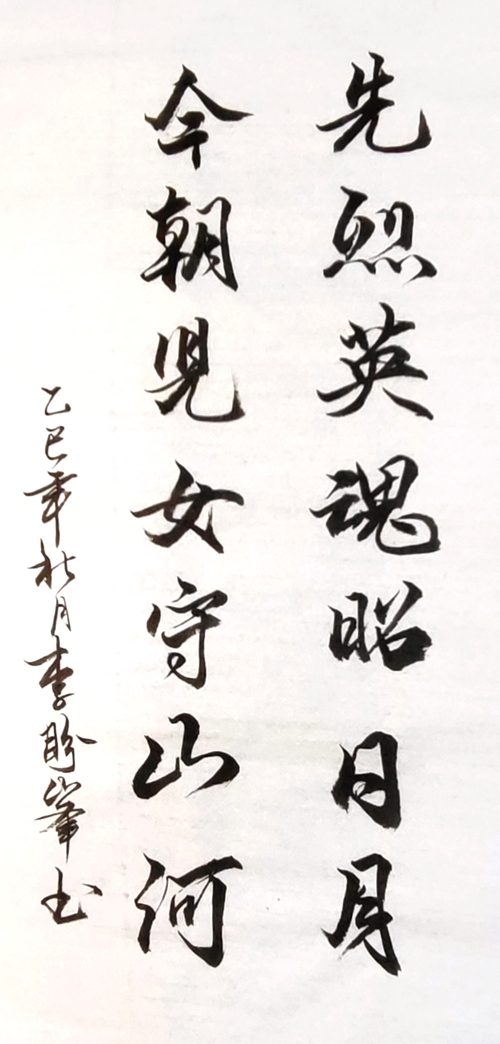 先烈英魂昭日月
今朝児女守山河
乙巳年秋月李盼峯书